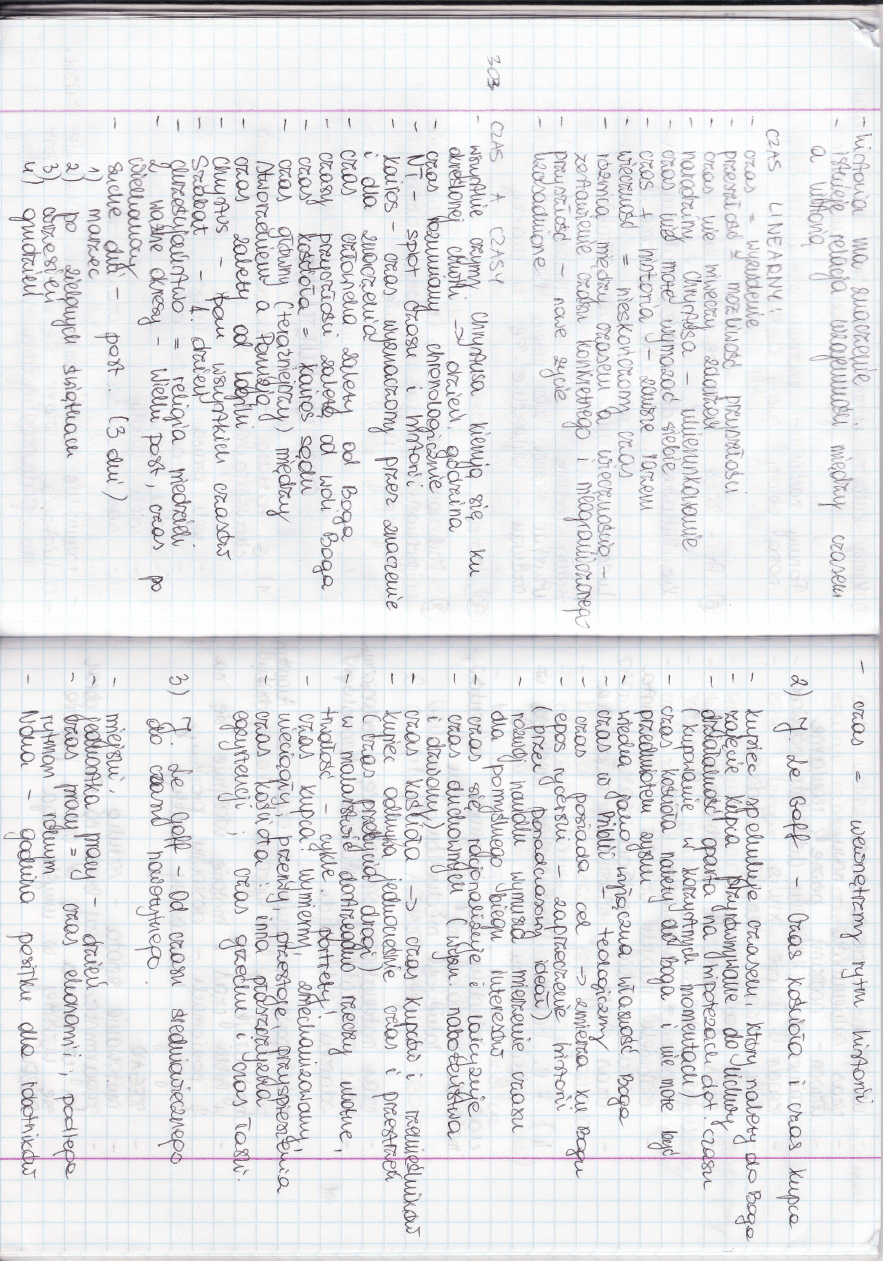 - historia ma znaczenie.
- istnieje relacja wzajemności między czasem
a wiarą
CZAS LINEARNY:
- czas = wypełnienie
- przeszłość, możliwość przyszłości
- czas nie niweczy
- narodziny Chrystusa - ukierunkowanie
- czas też może wyrażać siebie
- czas + historia - zawsze razem
- wieczność = nieskończony czas
- różnica między czasem a wiecznością -
zestawienie czasem konkretnego i nieograniczonego
- przyszłość - nowe życie
- uzasadnione
303 CZAS A CZASY
- wszystkie czyny Chrystusa kierują się ku
określonej chwili → dzień, godzina
- czas rozumiany chronologicznie
- NT - splot czasu i historii
- kairos - czas wyznaczony przez znaczenie
i dla znaczenia
- czas człowieka zależy od Boga
- czasy przyszłości zależą od woli Boga
- czas kościoła = kairos sądu
- czas główny (teraźniejszy) między
stworzeniem a Paruzją
- czas zależy od
- Chrystus - Pan wszystkich czasów
- Szabat - 1. dzień
- chrześcijaństwo = religia niedzieli
- 2 ważne okresy - wielki post, czas po
wielkanocy
- suche dni - post. (3 dni)
1) marzec
2) po zielonych świątkach
3) wrzesień
4) grudzień
- czas = wewnętrzny rytm historii
2) J. Le Goff - Czas kościoła i czas kupca
- kupiec spekuluje czasem, który należy do Boga
- zajęcie kupca przyrównywane do lichwy
- działalność oparta na hipotezach dot. czasu
(kupowanie w korzystnych momentach)
- czas kościoła należy do Boga i nie może być
przedmiotem zysku
- wiedza jako wyłączna własność Boga
- czas w Biblii - teologiczny
- czas posiada cel → zmierza ku Bogu
- epos rycerski - zaprzeczenie historii
(przez ponadczasowy ideał)
- rozwój handlu wymusza mierzenie czasu
dla pomyślnego biegu interesów
- czas się racjonalizuje i laicyzuje
- czas duchownych (wyzn. nabożeństwa
i dzwony)
- czas kościoła → czas kupców i rzemieślników
- kupiec odkrywa jednocześnie czas i przestrzeń
(czas przebycia drogi)
- w malarstwie dostrzeżono rzeczy ulotne,
trwałość - cykle. portrety!
- czas kupca: wymierny, zmechanizowany,
nieciągły, przerwy, przestoje, przyspieszenia
- czas kościoła: inna płaszczyzna
egzystencji; czas grzechu i czas łaski.
3) J. Le Goff - Od czasu średniowiecznego
do czasu nowożytnego.
- miejski,
- jednostka pracy - dzień
- czas pracy = czas ekonomii, podlega
rytmom rolnym
- Nona - godzina posiłku dla robotników